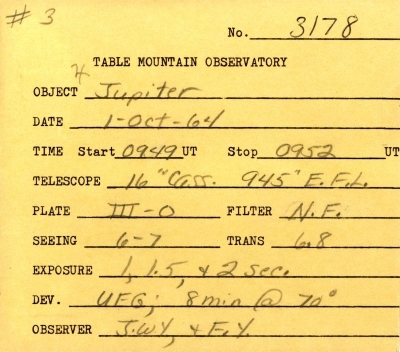 # 3
No. 3178
TABLE MOUNTAIN OBSERVATORY
♃
OBJECT Jupiter
DATE 1-Oct-64
TIME Start 0949 UT Stop 0952 UT
TELESCOPE 16" Cass. 945" E.F.L.
PLATE III-O FILTER N.F.
SEEING 6-7 TRANS 6.8
EXPOSURE 1, 1.5, & 2 sec.
DEV. UFG; 8 min @ 70°
OBSERVER J.W.Y, & F.Y.